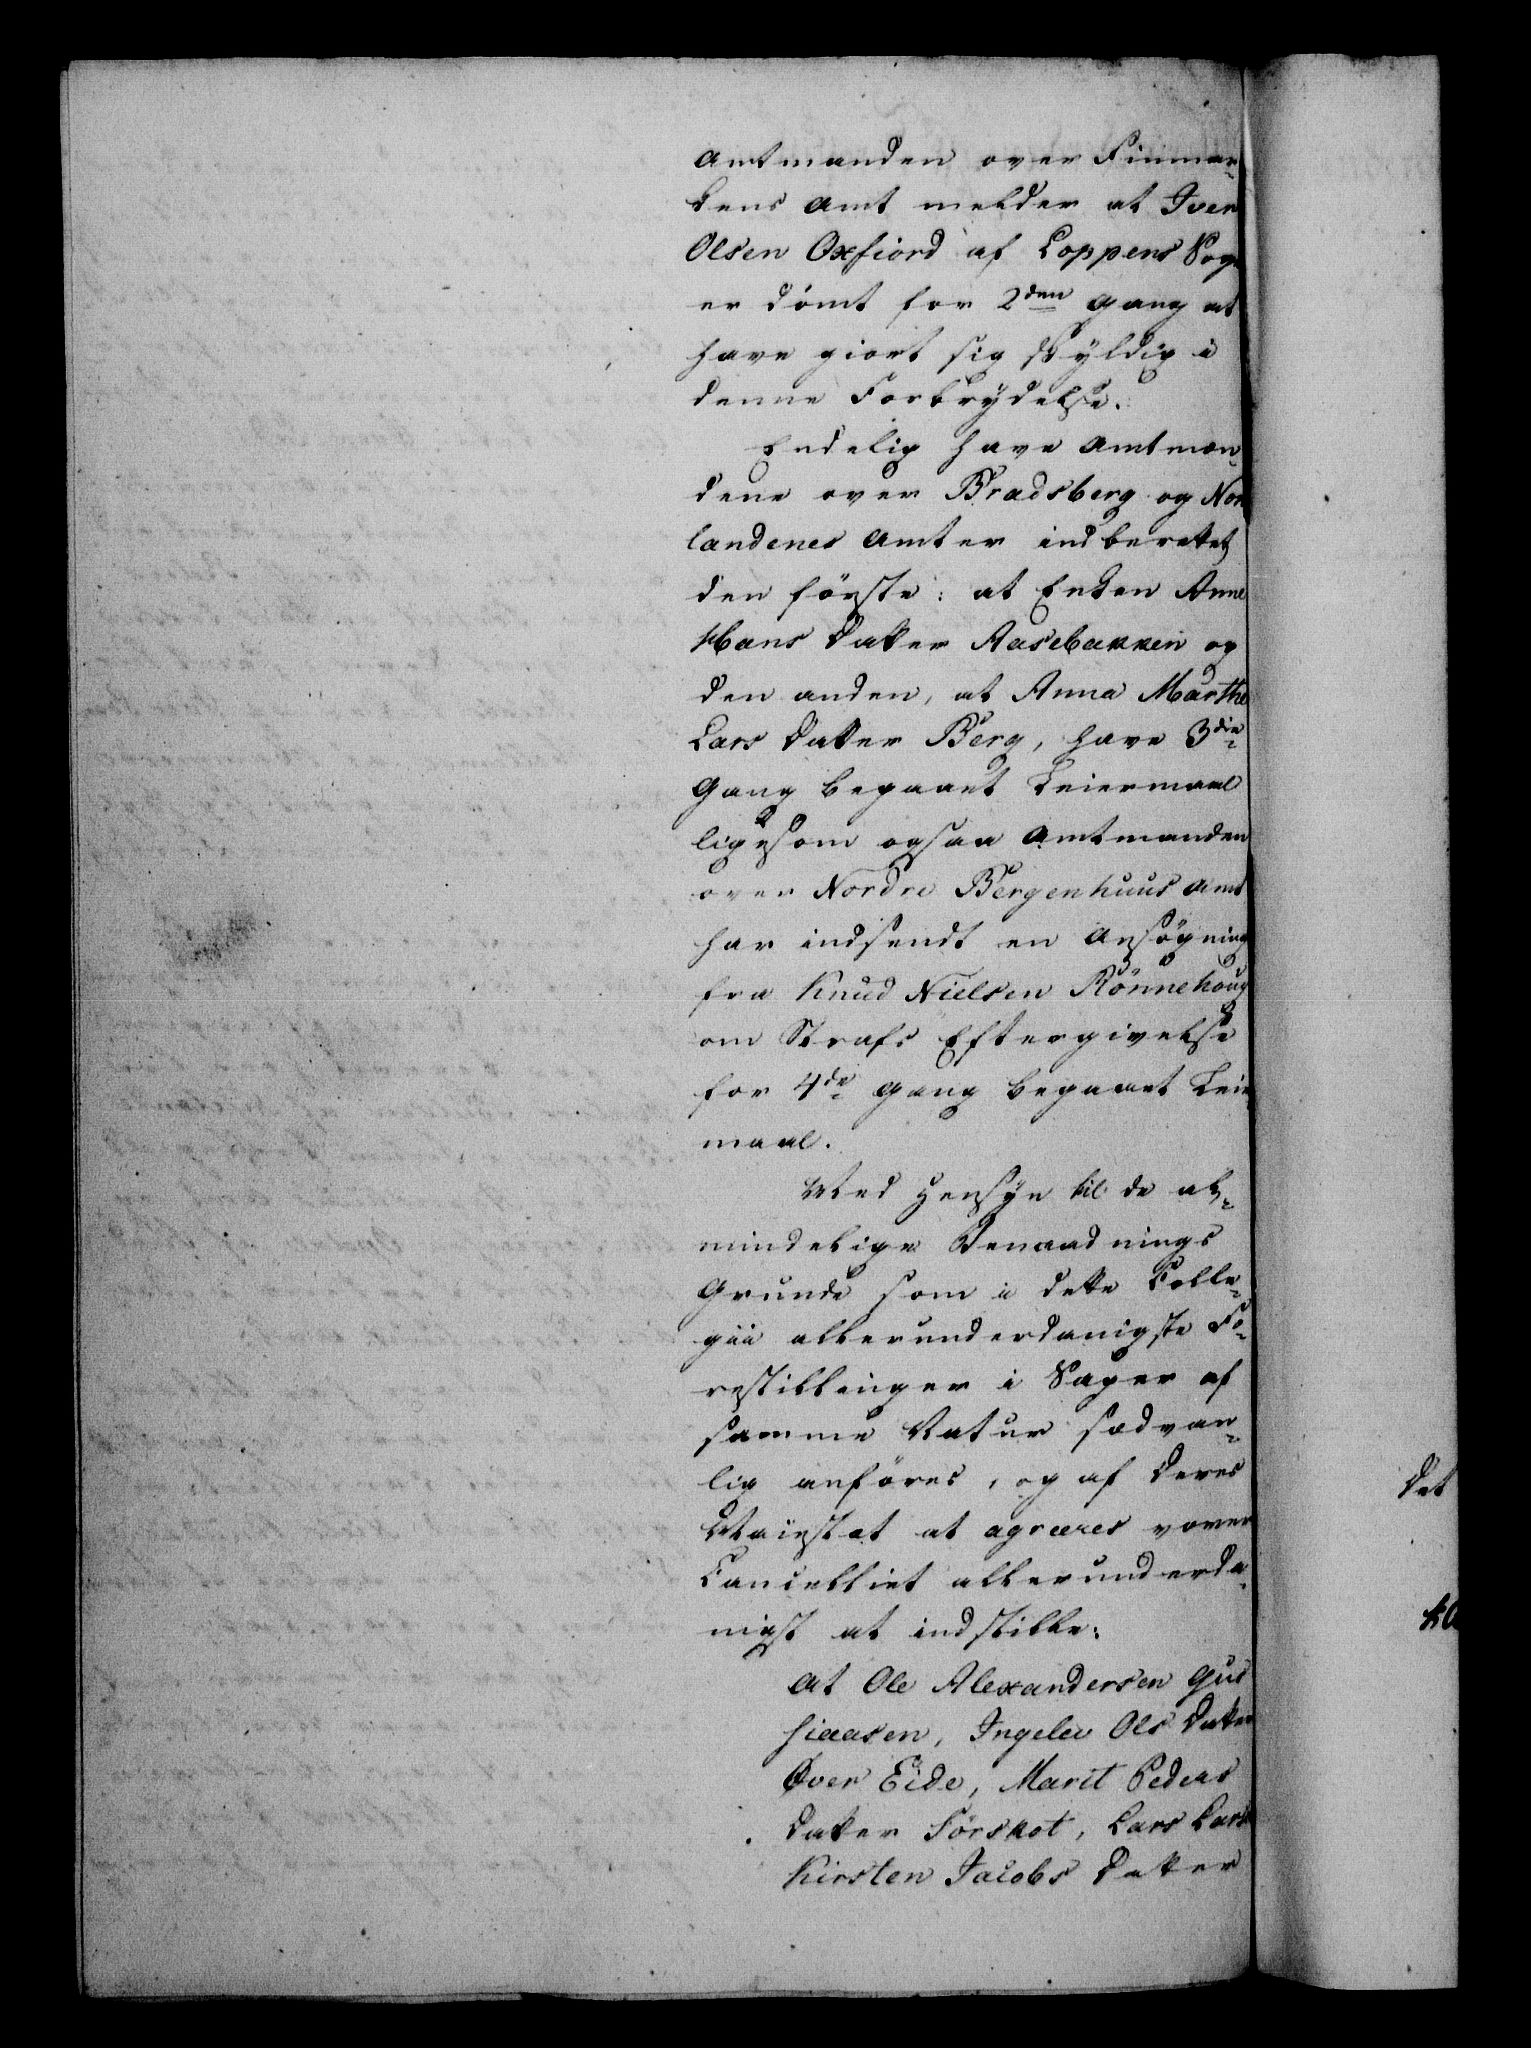 Amtmanden over Finmar-
kens Amt melder at Iver
Olsen Oxfiord af Loppens Sogn
er dömt for 2den Gang at
have giort sig skyldig i
denne Forbrydelse.
Endelig have Amtmæn-
dene over Bradsberg og Nor
landenes Amter indberettet,
den förste: at Enken Anne
Hans Datter Aasebakken og
den anden, at Anna Marthe
Lars Datter Berg, have 3die
Gang begaaet Leiermaal
ligesom ogsaa Amtmanden
over Nordre Bergenhuus Amt
har indsendt en Ansögning
fra Knud Nielsen Rönnehoug
om Strafs Eftergivelse
for 4de Gang begaaet Leier-
maal.
Med Hensyn til de al-
mindelige Benaadnings
Grunde som i dette Colle-
gii allerunderdanigste Fo-
restillinger i Sager af
samme Natur sædvan-
lig anföres, og af Deres
Maiestæt at agreeres vover
Cancelliet allerunderda-
nigst at indstille:
At Ole Alexandersen Gus
hiaasen, Ingelev Ols Datter
Över Eide, Marit Peders
Datter Förskot, Lars Lars
Kirsten Jacobs Datter
Det